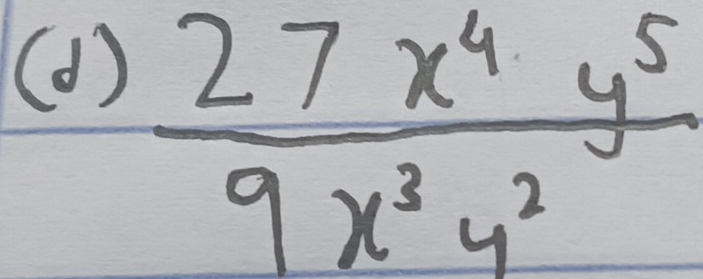 (d) 27 x⁴ y⁵
9 x³ y²